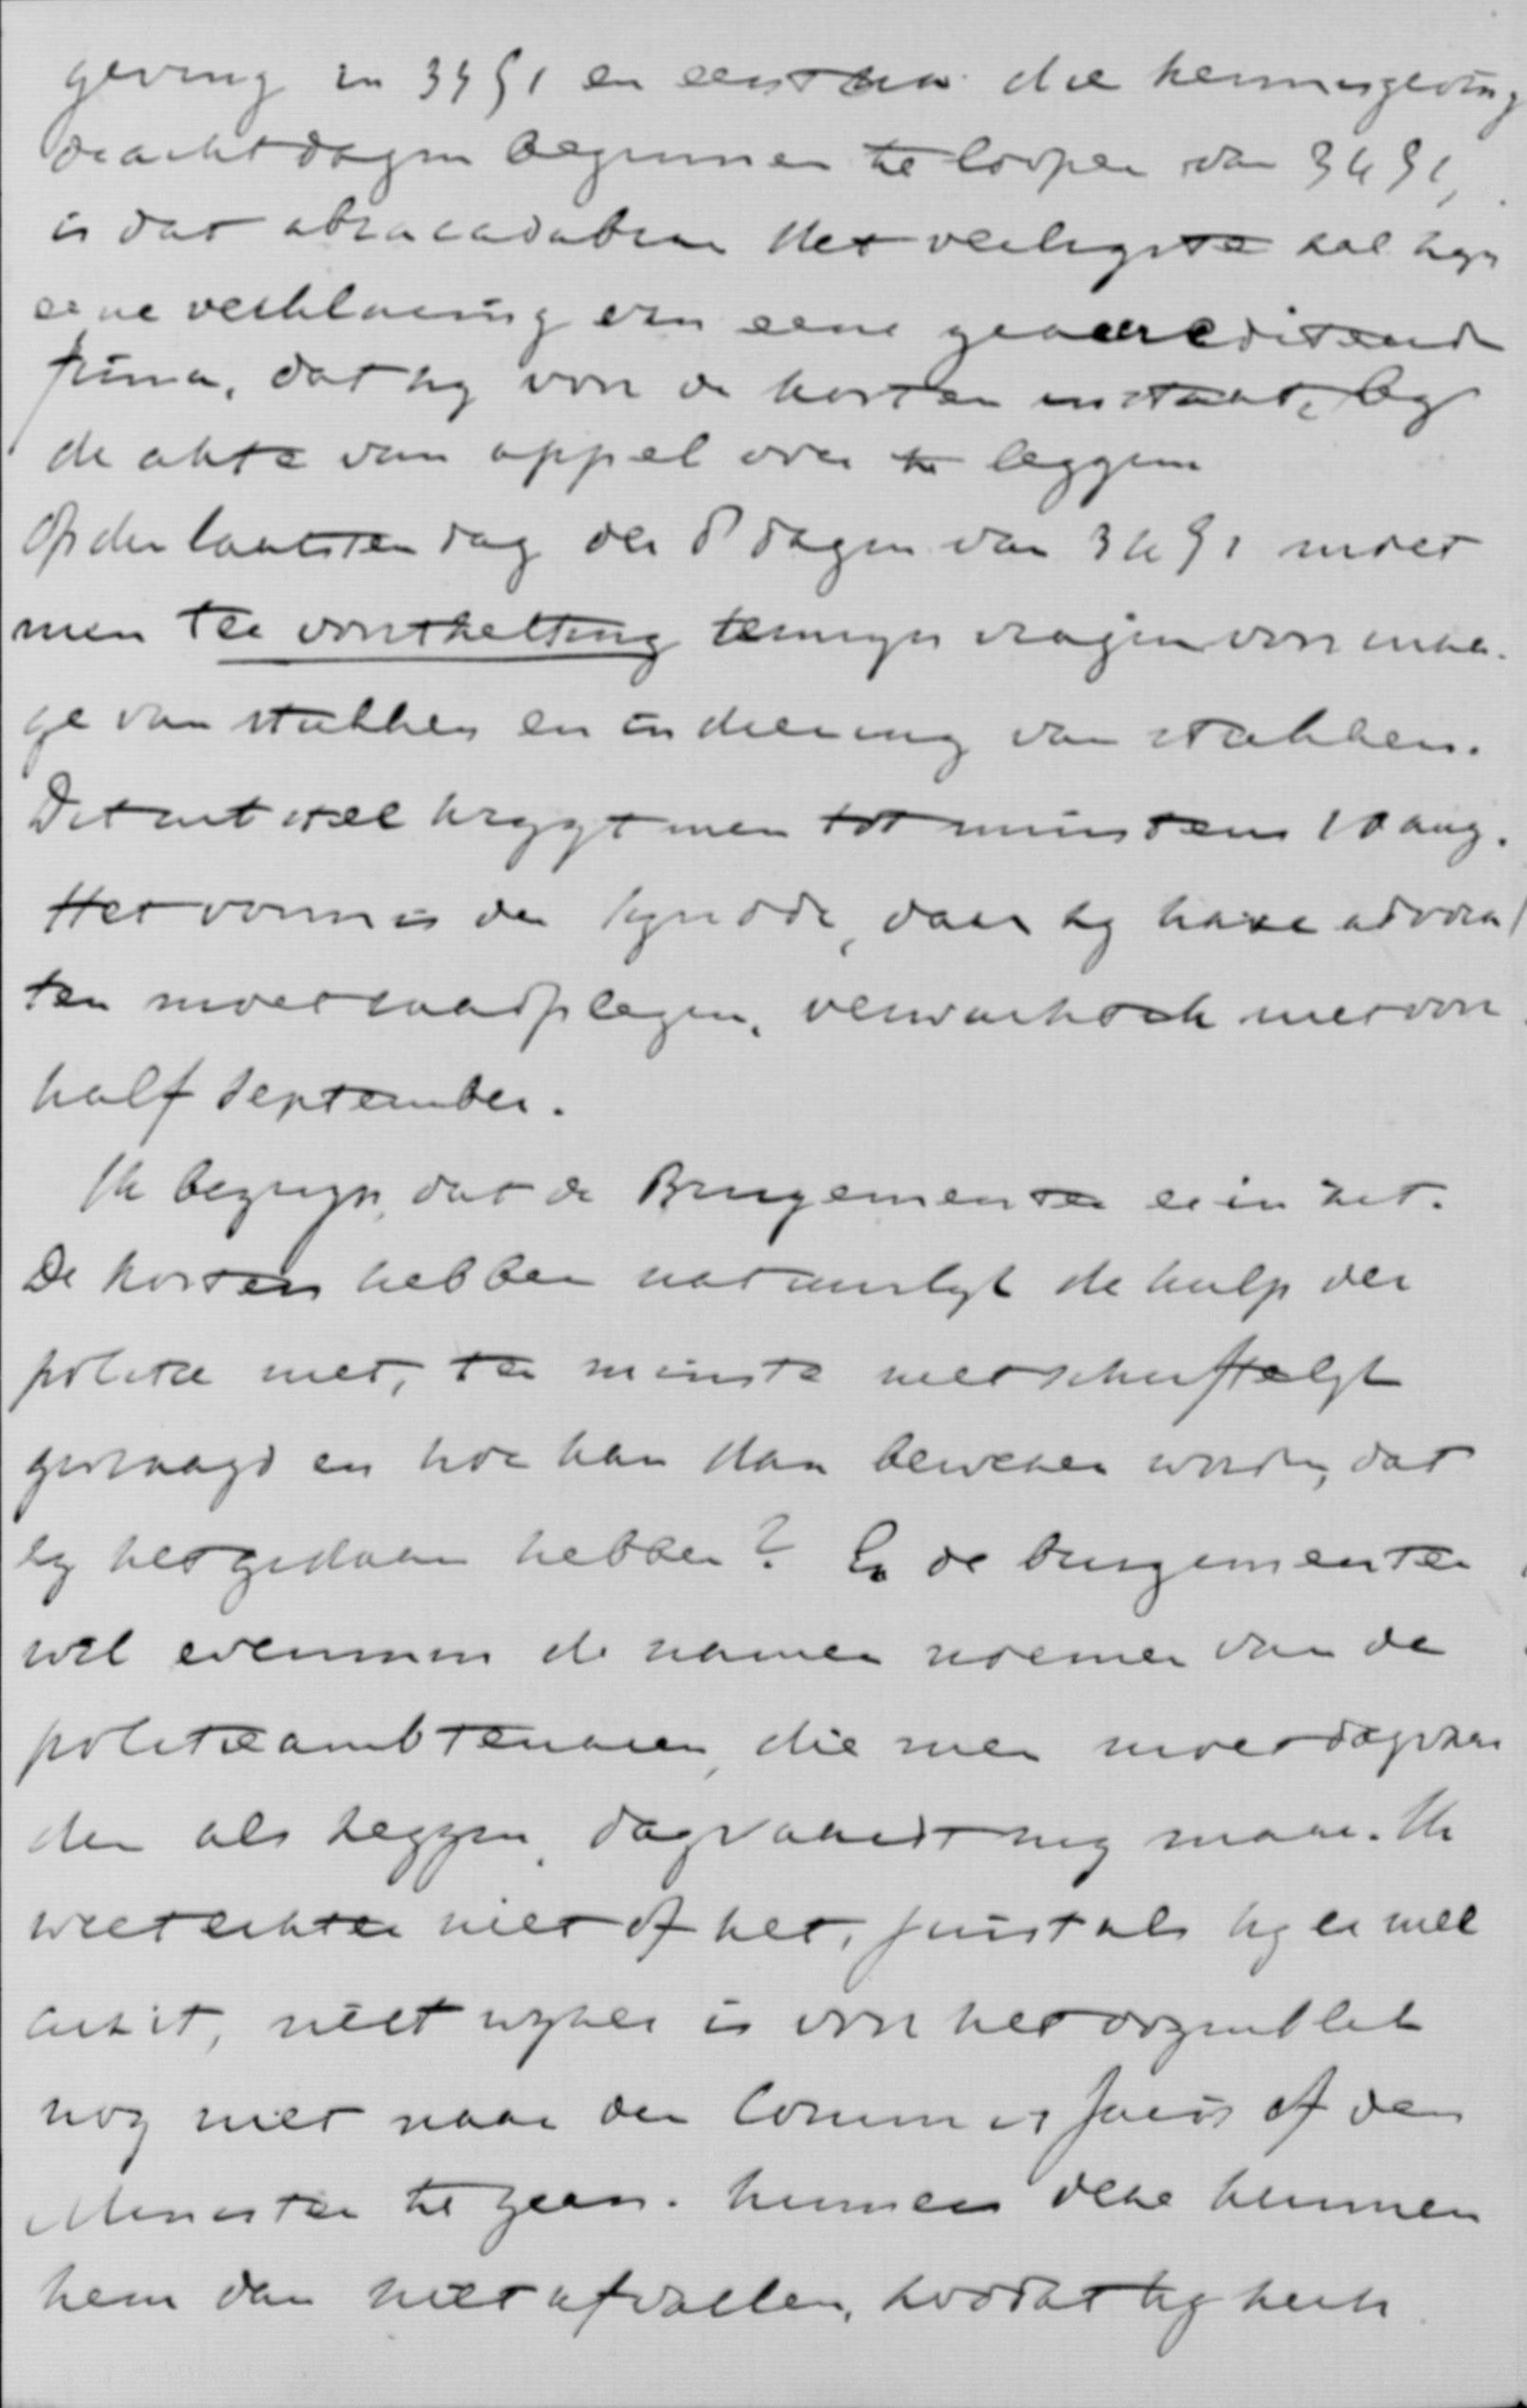 geving in 34 § 1 en eerst na die kennisgeving
de acht dagen beginnen te loopen van 34 § 1,
is dat abracadabra het veiligste zal zijn
eene verklaring van eene geaccrediteerde
firma, dat zij voor de kosten instaat, bij
de akte van appel over te leggen
Op den laatsten dag der 8 dagen van 34 § 1 moet
men ter voortzetting termijn vragen voor inza-
ge van stukken en indiening van stukken.
Dit uitstel krijgt men tot minstens 10 aug.
Het vonnis der Synode, daar zij hare advoca
ten moet raadplegen, verwacht ik niet voor
half September.
Ik begrijp, dat de Burgemeester er in zit.
De kosters hebben natuurlijk de hulp der
politie niet, ten minste niet schriftelijk
gevraagd en hoe kan dan bewezen worden, dat
zij het gedaan hebben? En de burgemeester
wil evenmin de namen noemen van de
politieambtenaren, die men moet dagvaar
den als zeggen, dagvaardt mij maar. Ik
weet echter niet of het, juist als hij er mee
in zit, niet wijzer is voor het oogenblik
nog niet naar den Commissaris of den
Minister te gaan. Kunnen deze kunnen
hem dan niet afvallen, doordat hij heeft